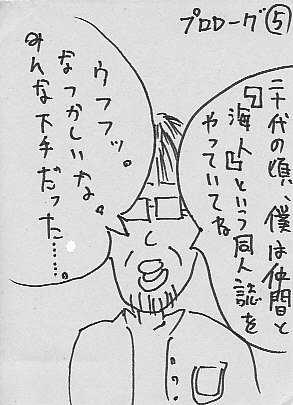 プロローグ⑤
二十代の頃、僕は仲間と
『海人』という同人誌を
やっていてね
ウフフッ。
なつかしいな。
みんな下手だった……。